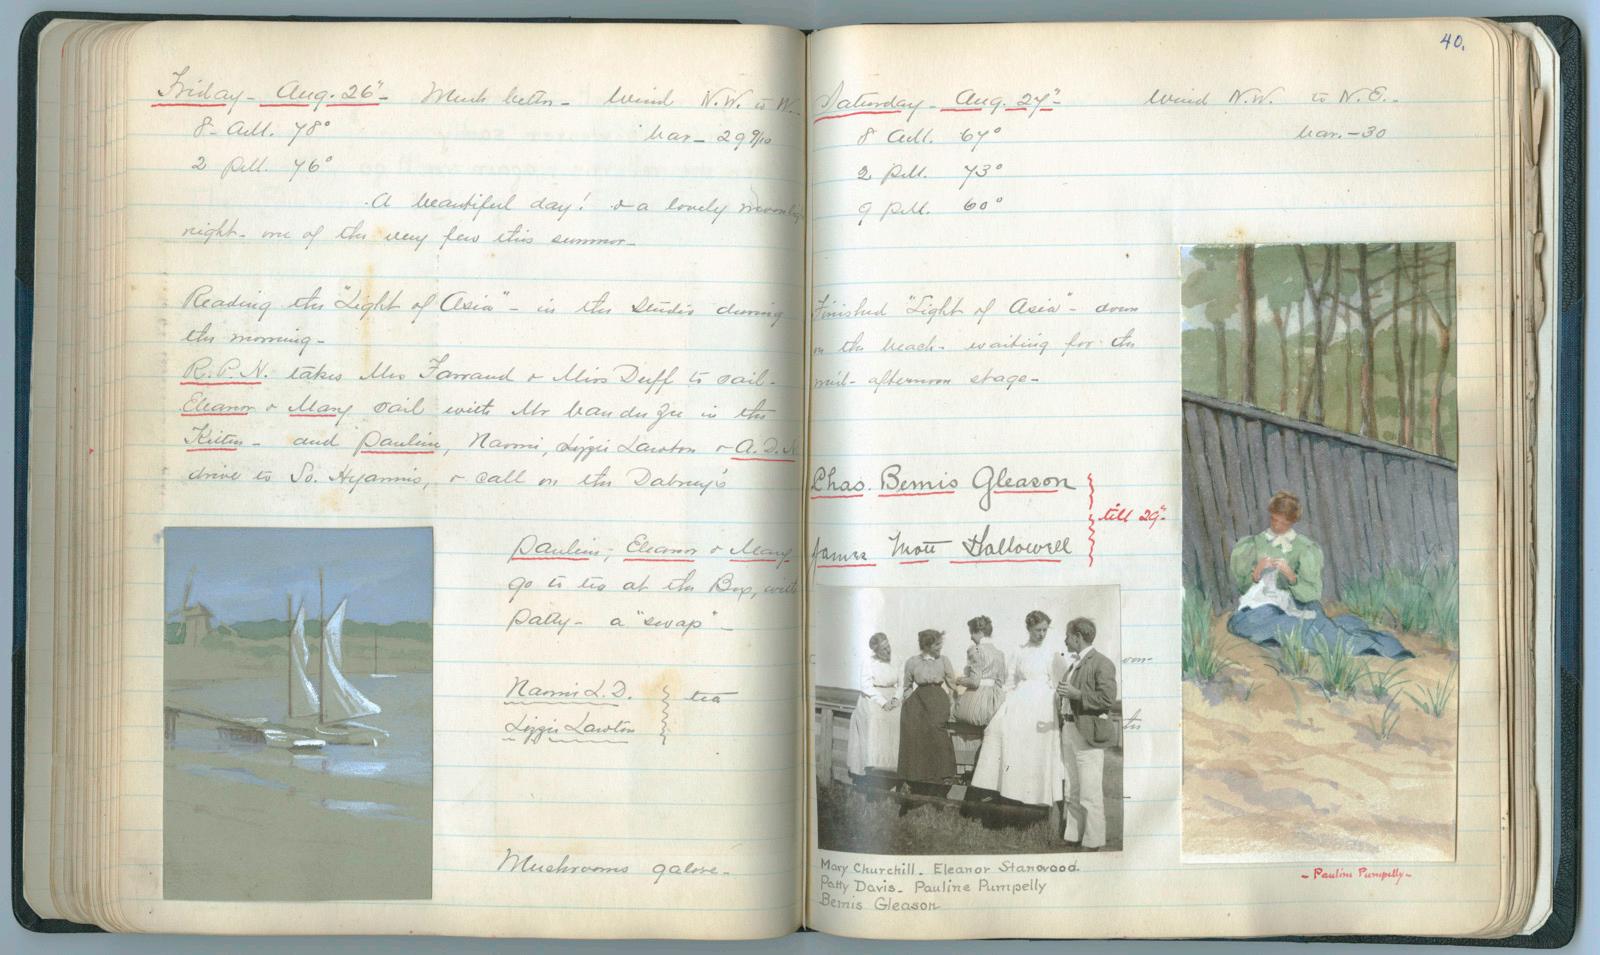 Friday - Aug. 26" - Much better - Wind N.W. to W.
8 - A.M. 78° bar - 29 9/10
2 P.M. 76°
A beautiful day! & a lovely moonlight
night - one of the very few this summer -
Reading the "Light of Asia" - in the studio during
the morning -
R.P.N. takes Mrs Farrand & Miss Duff to sail -
Eleanor & Mary sail with Mr in the
Kitten - and Pauline, Naomi, Lizzie Lawton & A.D.N
drive to So. Hyannis, & call on the Dabney's
Pauline, Eleanor & Mary
go to tea at the Box, with
Patty - a "swap" -
Naomi L.D.
Lizzie Lawton } tea
Mushrooms galore -
40.
Saturday - Aug. 27" - Wind N.W. to N.E. -
8 A.M. 67° bar. - 30
2 P.M. 73°
9 P.M. 60°
Finished "Light of Asia" - down
on the beach - waiting for the
mid - afternoon stage -
Chas. Bemis Gleason
James Mott Hallowell } till 29"
Mary Churchill. Eleanor Stanwood.
Patty Davis - Pauline Pumpelly
Bemis Gleason
- Pauline Pumpelly -